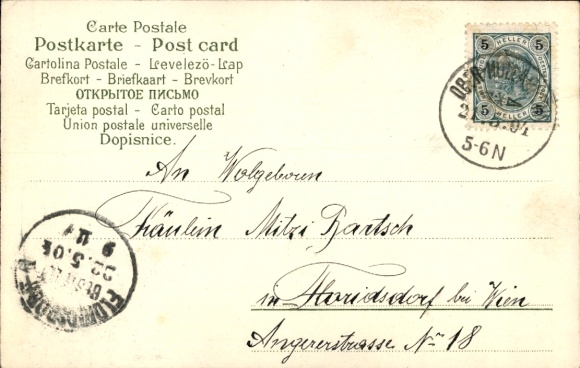 Carte Postale
Postkarte - Post card
Cartolina Postale - Levelezö-Lap
Brefkort - Briefkaart - Brevkort
ОТКРЫТОЕ ПИСЬМО
Tarjeta postal - Carto postal
Union postale universelle
Dopisnice.
5 HELLER 5
5 HELLER 5
5-6N
An Wolgeboren
Fräulein Mitzi Bartsch
in Floridsdorf bei Wien
Angererstrasse No 18
22.5.04
9